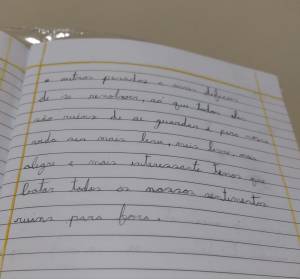 e outras parecidas e mais difíceis
de se resolverem, só que todas elas
são ruins de se guardar e para nossa
vida ser mais leve, mais leve, mais
alegre e mais interessante temos que
botar todos os nossos sentimentos
ruins para fora.